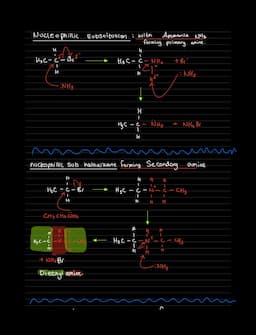 Nucleophilic Substitution : with Ammonia NH₃
forming primary amine.
H
H₃C - C - Br
H
:NH₃
H
H₃C - C - NH₃ + Br⁻
H
:NH₃
H
H₃C - C - NH₂ + NH₄Br
H
nucleophilic sub haloalkane forming Secondary amine
H₃C - C - Br
CH₃CH₂NH₂
H₃C - C - N - C - CH₃
H₃C - C - N - C - CH₃
:NH₃
+ NH₄Br
Diethyl amine